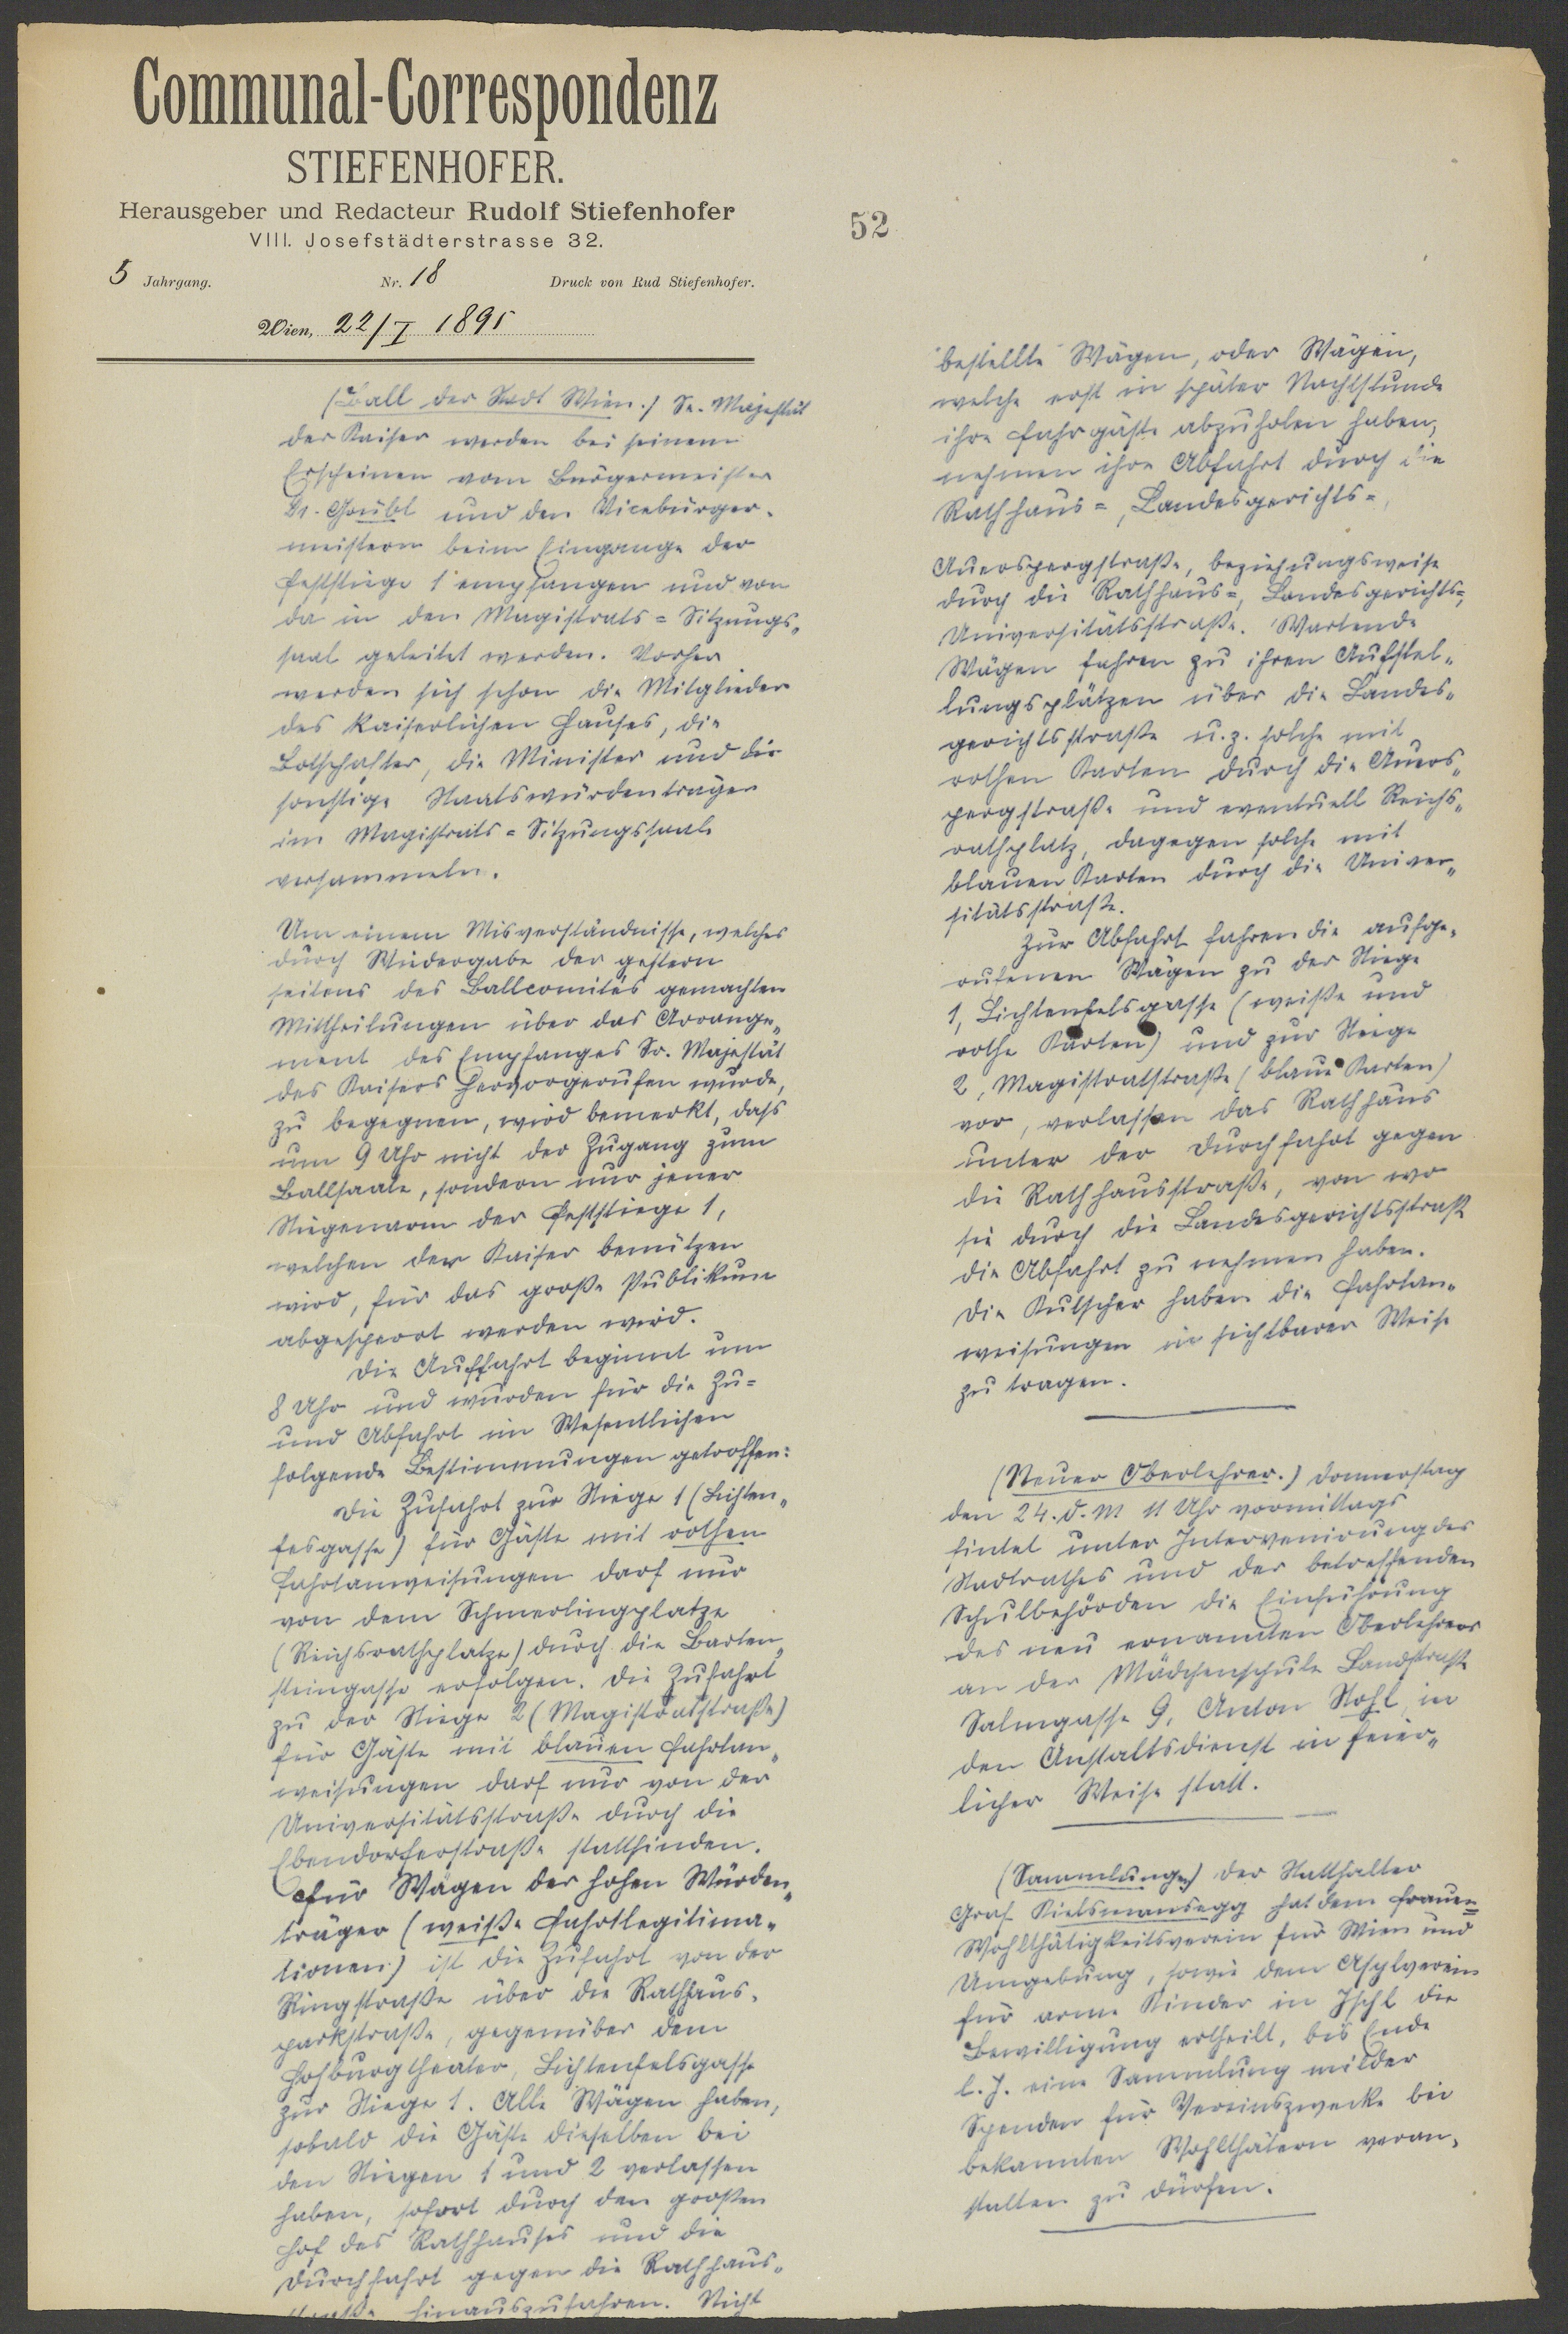 Communal-Correspondenz
STIEFENHOFER.
Herausgeber und Redacteur Rudolf Stiefenhofer
VIII. Josefstädterstrasse 32.
5 Jahrgang. Nr. 18 Druck von Rud Stiefenhofer.
Wien, 22/I 1895
52
(Ball der Stadt Wien.) Se. Majestät
der Kaiser werden bei seinem
Erscheinen vom Bürgermeister
Dr. Grübl und den Vicebürger-
meistern beim Eingange der
Feststiege 1 empfangen und von
da in den Magistrats-Sitzungs-
saal geleitet werden. Vorher
werden sich schon die Mitglieder
des kaiserlichen Hauses, die
Botschafter, die Minister und die
sonstige Staatswürdenträger
im Magistrats-Sitzungssaale
versammeln.
Um einem Misverständnisse, welches
durch Wiedergabe der gestern
seitens des Ballcomités gemachten
Mittheilungen über das Arrange-
ment des Empfanges Sr. Majestät
des Kaisers hervorgerufen wurde,
zu begegnen, wird bemerkt, dass
um 9 Uhr nicht der Zugang zum
Ballsaale, sondern nur jener
Stiegenarm der Feststiege 1,
welchen der Kaiser benützen
wird, für das große Publikum
abgesperrt werden wird.
Die Auffahrt beginnt um
8 Uhr und wurden für die Zu-
und Abfahrt im Wesentlichen
folgende Bestimmungen getroffen:
Die Zufahrt zur Stiege 1 (Lichten-
felsgasse) für Gäste mit rothen
Fahrtanweisungen darf nur
von dem Schmerlingplatze
(Reichsrathplatze) durch die Barten-
steingasse erfolgen. Die Zufahrt
zu der Stiege 2 (Magistratsstraße)
für Gäste mit blauen Fahrtan-
weisungen darf nur von der
Universitätsstraße durch die
Ebendorferstraße stattfinden.
Für Wägen der hohen Würden-
träger (weiße Fahrtlegitima-
tionen) ist die Zufahrt von der
Ringstraße über die Rathhaus-
parkstraße, gegenüber dem
Hofburgtheater, Lichtenfelsgasse
zur Stiege 1. Alle Wägen haben,
sobald die Gäste dieselben bei
den Stiegen 1 und 2 verlassen
haben, sofort durch den großen
Hof des Rathhauses und die
Durchfahrt gegen die Rathhaus-
straße hinauszufahren. Nicht
bestellte Wägen, oder Wägen,
welche erst in später Nachtstunde
ihre Fahrgäste abzuholen haben,
nehmen ihre Abfahrt durch die
Rathhaus-, Landesgerichts-,
Auerspergstraße, beziehungsweise
durch die Rathhaus-, Landesgerichts-,
Universitätsstraße. Wartende
Wägen fahren zu ihren Aufstel-
lungsplätzen über die Landes-
gerichtsstraße u. z. solche mit
rothen Karten durch die Auers-
pergstraße und eventuell Reichs-
rathplatz, dagegen solche mit
blauen Karten durch die Univer-
sitätsstraße.
Zur Abfahrt fahren die aufge-
rufenen Wägen zu der Stiege
1, Lichtenfelsgasse (weiße und
rothe Karten) und zur Stiege
2, Magistratstraße (blaue Karten)
vor, verlassen das Rathhaus
unter der Durchfahrt gegen
die Rathhausstraße, von wo
sie durch die Landesgerichtsstraße
die Abfahrt zu nehmen haben.
Die Kutscher haben die Fahrtan-
weisungen in sichtbarer Weise
zu tragen.
(Neuer Oberlehrer.) Donnerstag
den 24. d. M 11 Uhr vormittags
findet unter Intervenirung des
Stadtrathes und der betreffenden
Schulbehörden die Einführung
des neu ernannten Oberlehrers
an der Mädchenschule Landstraße
Salmgasse 9, Anton Stohl in
den Anstaltsdienst in feier-
licher Weise statt.
(Sammlungen) Der Statthalter
Graf Kielmansegg hat dem Frauen-
Wohlthätigkeitsverein für Wien und
Umgebung, sowie dem Asylverein
für arme Kinder in Ischl die
Bewilligung ertheilt, bis Ende
l. J. eine Sammlung milder
Spenden für Vereinszwecke bei
bekannten Wohlthätern veran-
stalten zu dürfen.